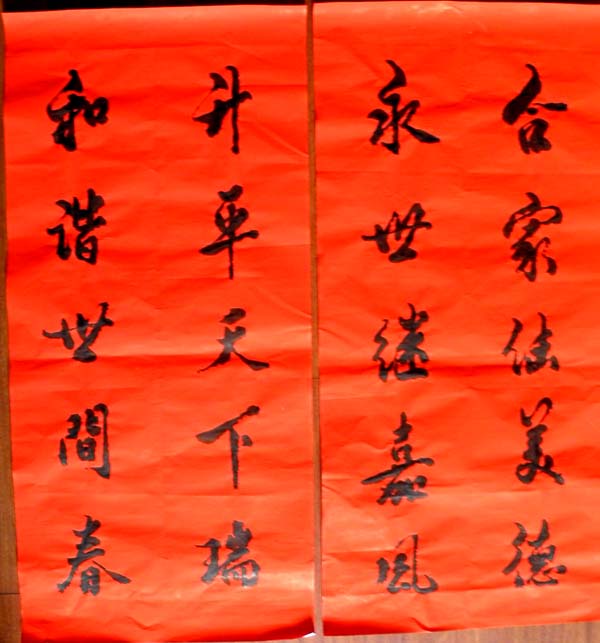 合家传美德
永世继嘉风
升平天下瑞
和谐世間春